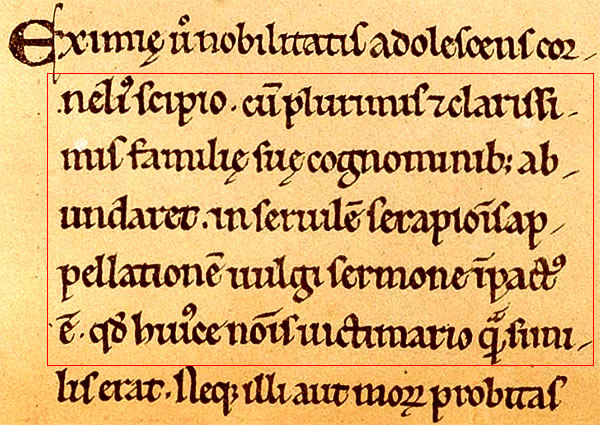 Eximię ū nobilitatis adolescens cor-
neli᷒ scipio. cū plurimis ⁊ clarissi-
mis familię suę cognominib; ab-
undaret. in seruilē serapiōis ap-
pellationē uulgi sermone īpact᷒
ē. qđ hui᷒ce nōis uictimario q̄ simi-
lis erat. Neq; illi aut moꝝ probitas